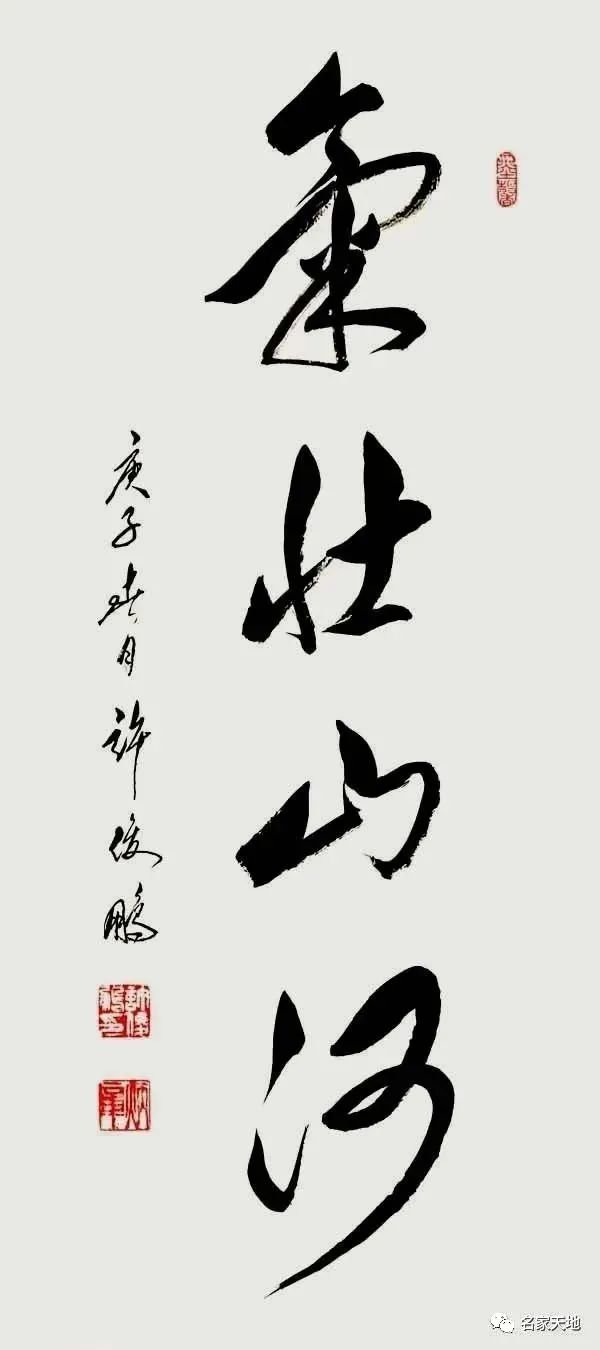 氣壯山河
庚子春月許俊鵬
名家天地